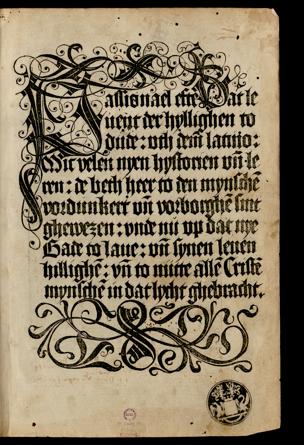 Passionael efte Dat le
uent der hyllighen to
dude: vth dem latino:
Mit velen nyen hystorien vñ le
ren: de beth heer to den mynschē
vordunkert vñ vorborghē sint
ghewezen: vnde nu vp dat nye
Gade to laue: vñ synen leuen
hillighē: vñ to nutte allē Cristē
mynschen in dat lycht ghebracht.